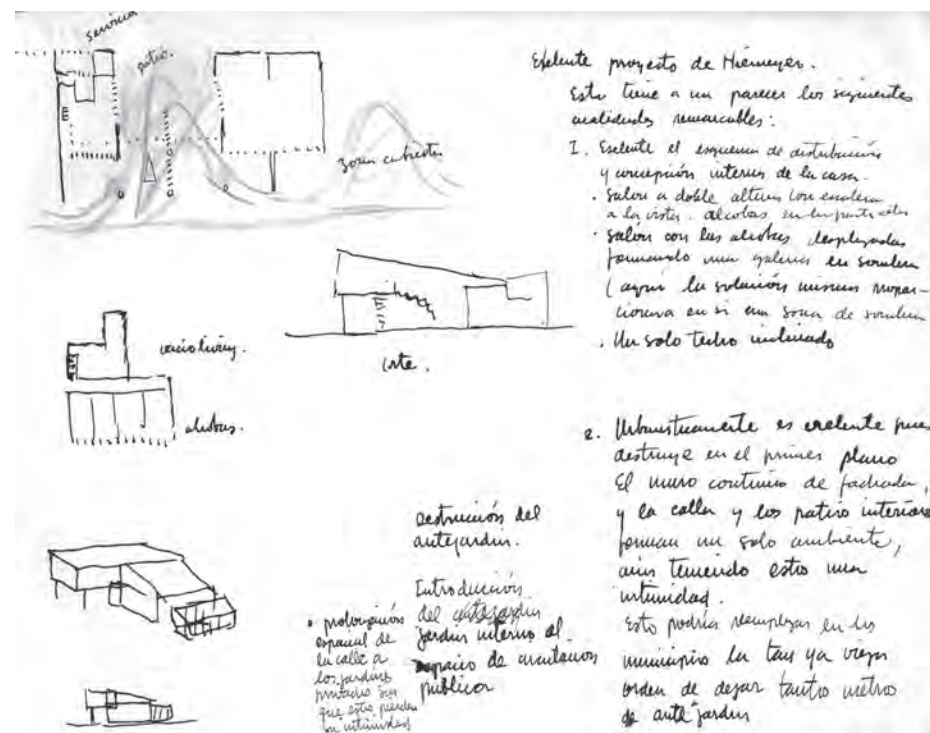 servicio
patio.
zonas cubiertas
Exelente proyecto de Niemeyer.
Esta tiene a mi parecer las siguientes
cualidades remarcables:
I. Exelente el esquema de distribución
y concepción interna de la casa.
. Salon a doble altura con escalera
a la vista. alcobas en la parte alta
. Salon con las alcobas desplazadas
formando una galeria en sombra
(aquí la solución misma
en si una zona de sombra
. Un solo techo inclinado
vacio living.
alcobas.
corte.
2. Urbanisticamente es exelente pues
destruye en el primer plano
El muro continuo de fachada,
y la calle y los patios interiores
forman un solo ambiente,
aún teniendo estos una
intimidad.
Esto podría remplazar en los
municipios la tan ya vieja
orden de dejar tantos metros
de ante jardin
destrucción del
antejardin.
Introducción
del
jardin interno al
espacio de circulación
publica
prolongación
espacial de
la calle a
los jardines
privados sin
que estos pierdan
su intimidad